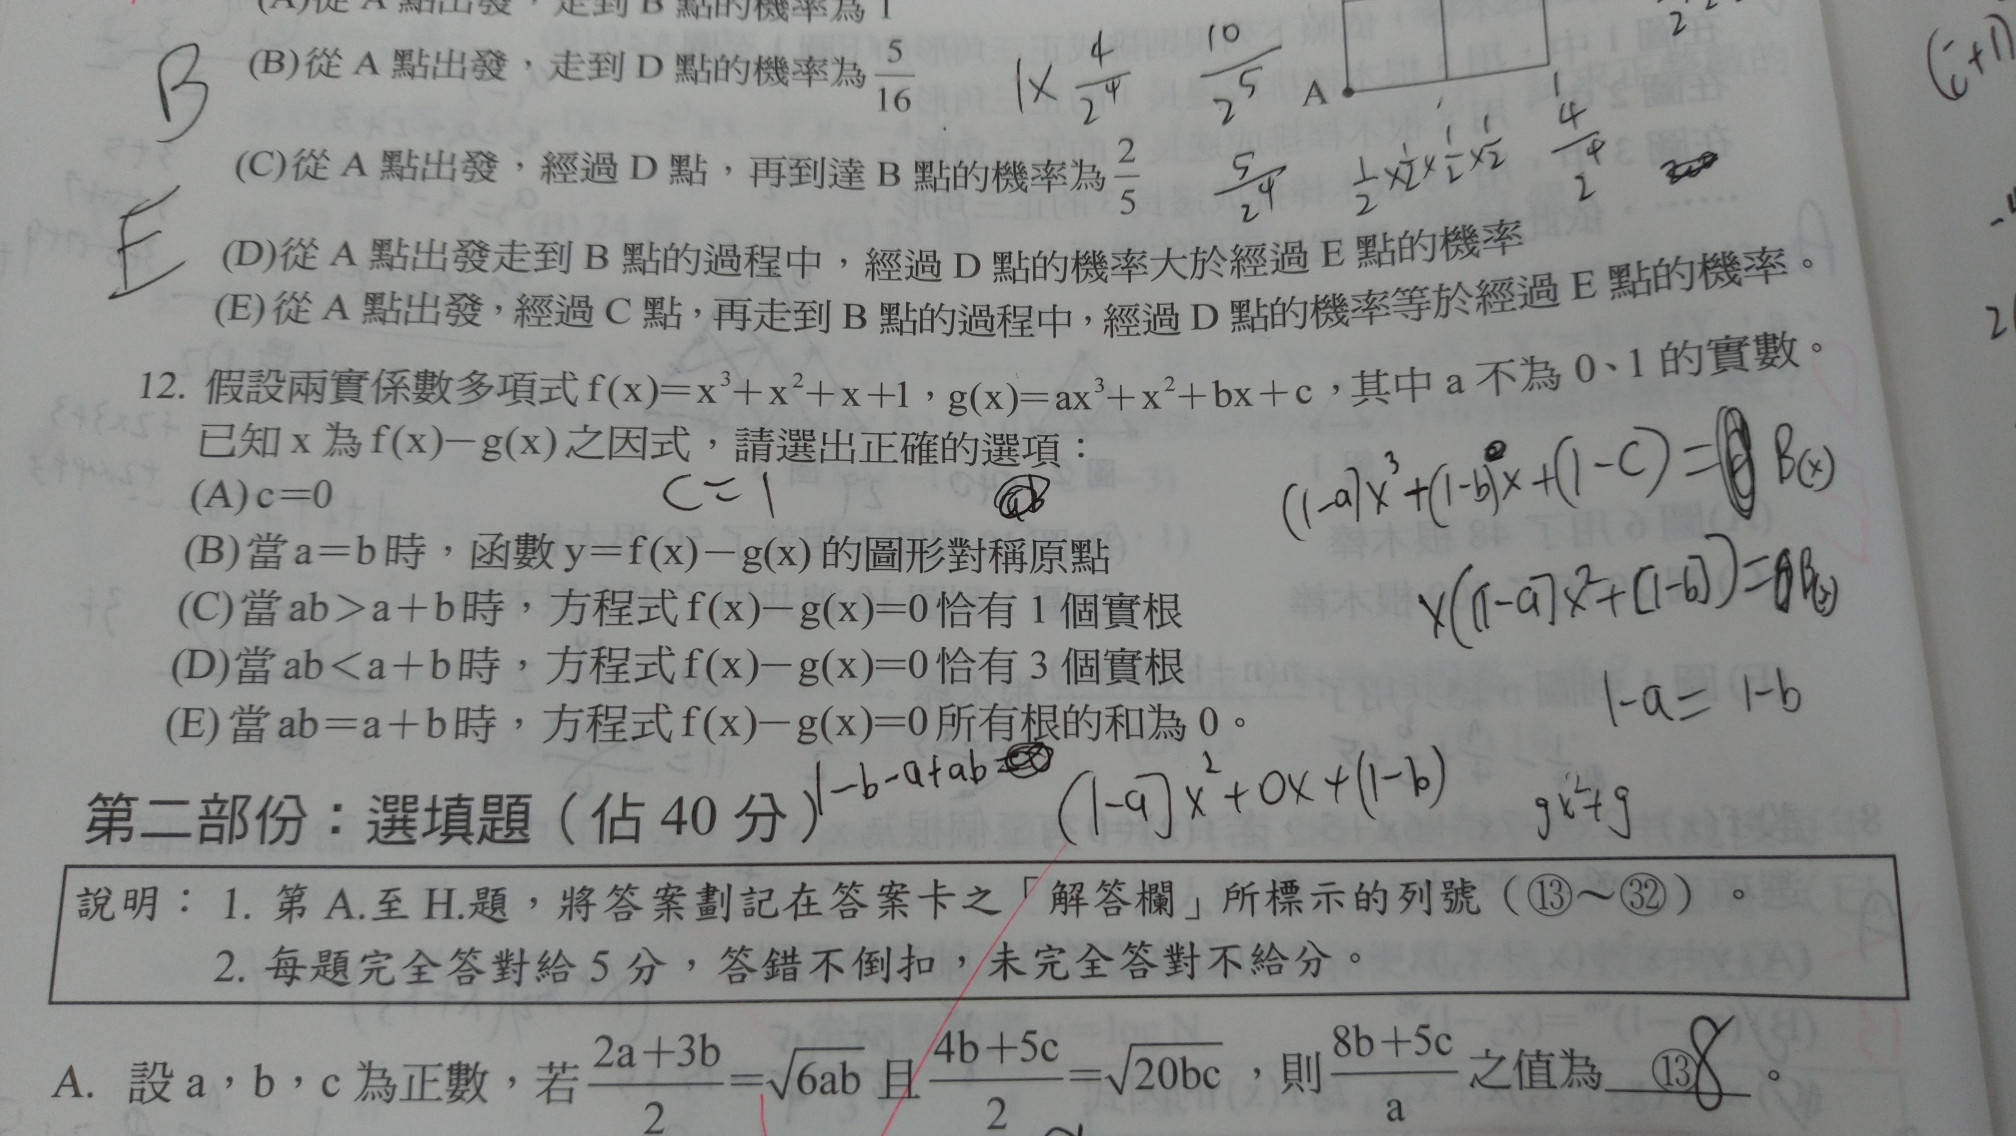 (A)從 A 點出發，走到 B 點的機率為 1
(B)從 A 點出發，走到 D 點的機率為 5/16
B
1× 4/2^4
10/2^5
A
(C)從 A 點出發，經過 D 點，再到達 B 點的機率為 2/5
5/2^4
1/2×1/2×1/2×1/2
4/2^4
E
(D)從 A 點出發走到 B 點的過程中，經過 D 點的機率大於經過 E 點的機率
(E)從 A 點出發，經過 C 點，再走到 B 點的過程中，經過 D 點的機率等於經過 E 點的機率。
12. 假設兩實係數多項式 f(x)=x³+x²+x+1，g(x)=ax³+x²+bx+c，其中 a 不為 0、1 的實數。
已知 x 為 f(x)−g(x) 之因式，請選出正確的選項：
(A) c=0
c=1
(1-a)x³+(1-b)x+(1-c)= B(x)
(B)當 a=b 時，函數 y=f(x)−g(x) 的圖形對稱原點
(C)當 ab>a+b 時，方程式 f(x)−g(x)=0 恰有 1 個實根
x((1-a)x²+(1-b))= B(x)
(D)當 ab<a+b 時，方程式 f(x)−g(x)=0 恰有 3 個實根
1-a=1-b
(E)當 ab=a+b 時，方程式 f(x)−g(x)=0 所有根的和為 0。
1-b-a+ab=
(1-a)x²+0x+(1-b)
gx²+g
第二部份：選填題（佔 40 分）
說明：1. 第 A.至 H.題，將答案劃記在答案卡之「解答欄」所標示的列號（⑬～㉜）。
2. 每題完全答對給 5 分，答錯不倒扣，未完全答對不給分。
A. 設 a，b，c 為正數，若 (2a+3b)/2=√6ab 且 (4b+5c)/2=√20bc，則 (8b+5c)/a 之值為 ⑬ 8 。